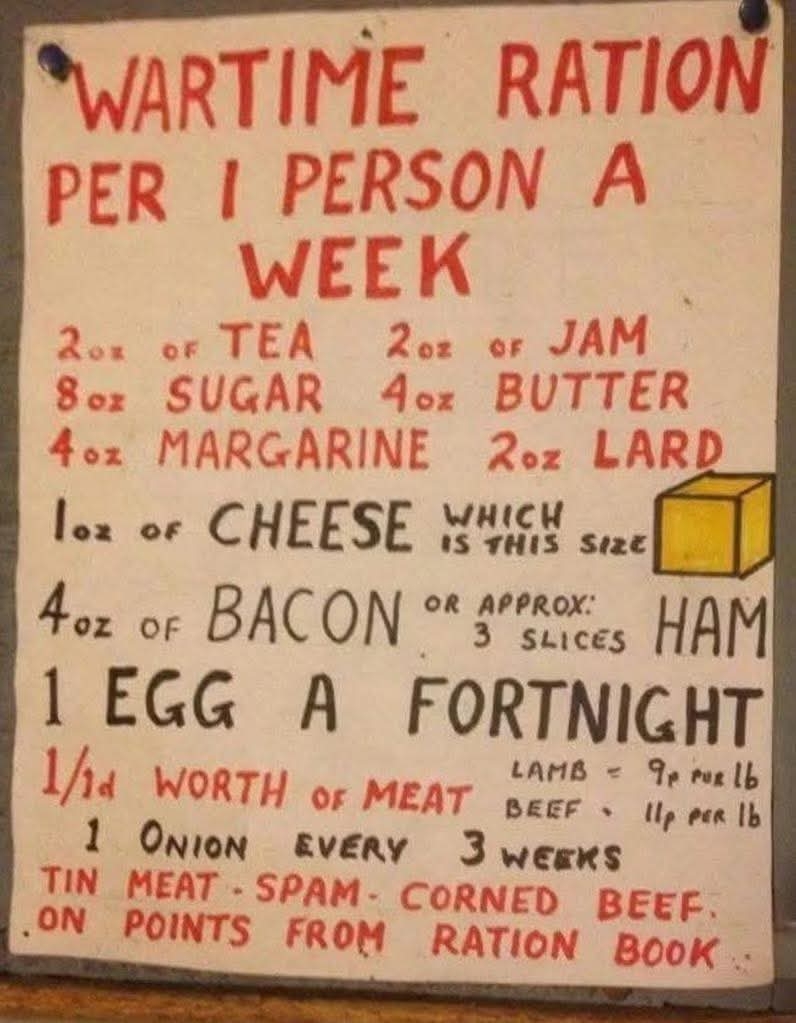 WARTIME RATION
PER 1 PERSON A
WEEK
2oz OF TEA 2oz OF JAM
8oz SUGAR 4oz BUTTER
4oz MARGARINE 2oz LARD
1oz OF CHEESE WHICH IS THIS SIZE
4oz OF BACON OR APPROX: 3 SLICES HAM
1 EGG A FORTNIGHT
1/1d WORTH OF MEAT LAMB = 9p PUR lb
BEEF · 11p PER lb
1 ONION EVERY 3 WEEKS
TIN MEAT - SPAM - CORNED BEEF.
ON POINTS FROM RATION BOOK